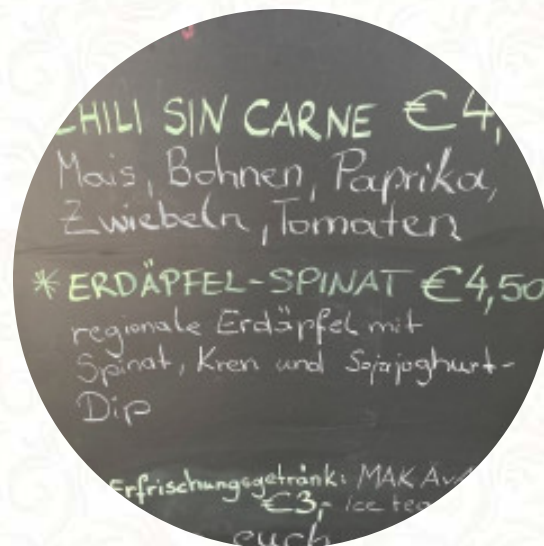 CHILI SIN CARNE €4,
Mais, Bohnen, Paprika,
Zwiebeln, Tomaten
* ERDÄPFEL-SPINAT €4,50
regionale Erdäpfel mit
Spinat, Kren und Sojajoghurt-
Dip
Erfrischungsgetränk: MAK
€3,- ice tea
euch